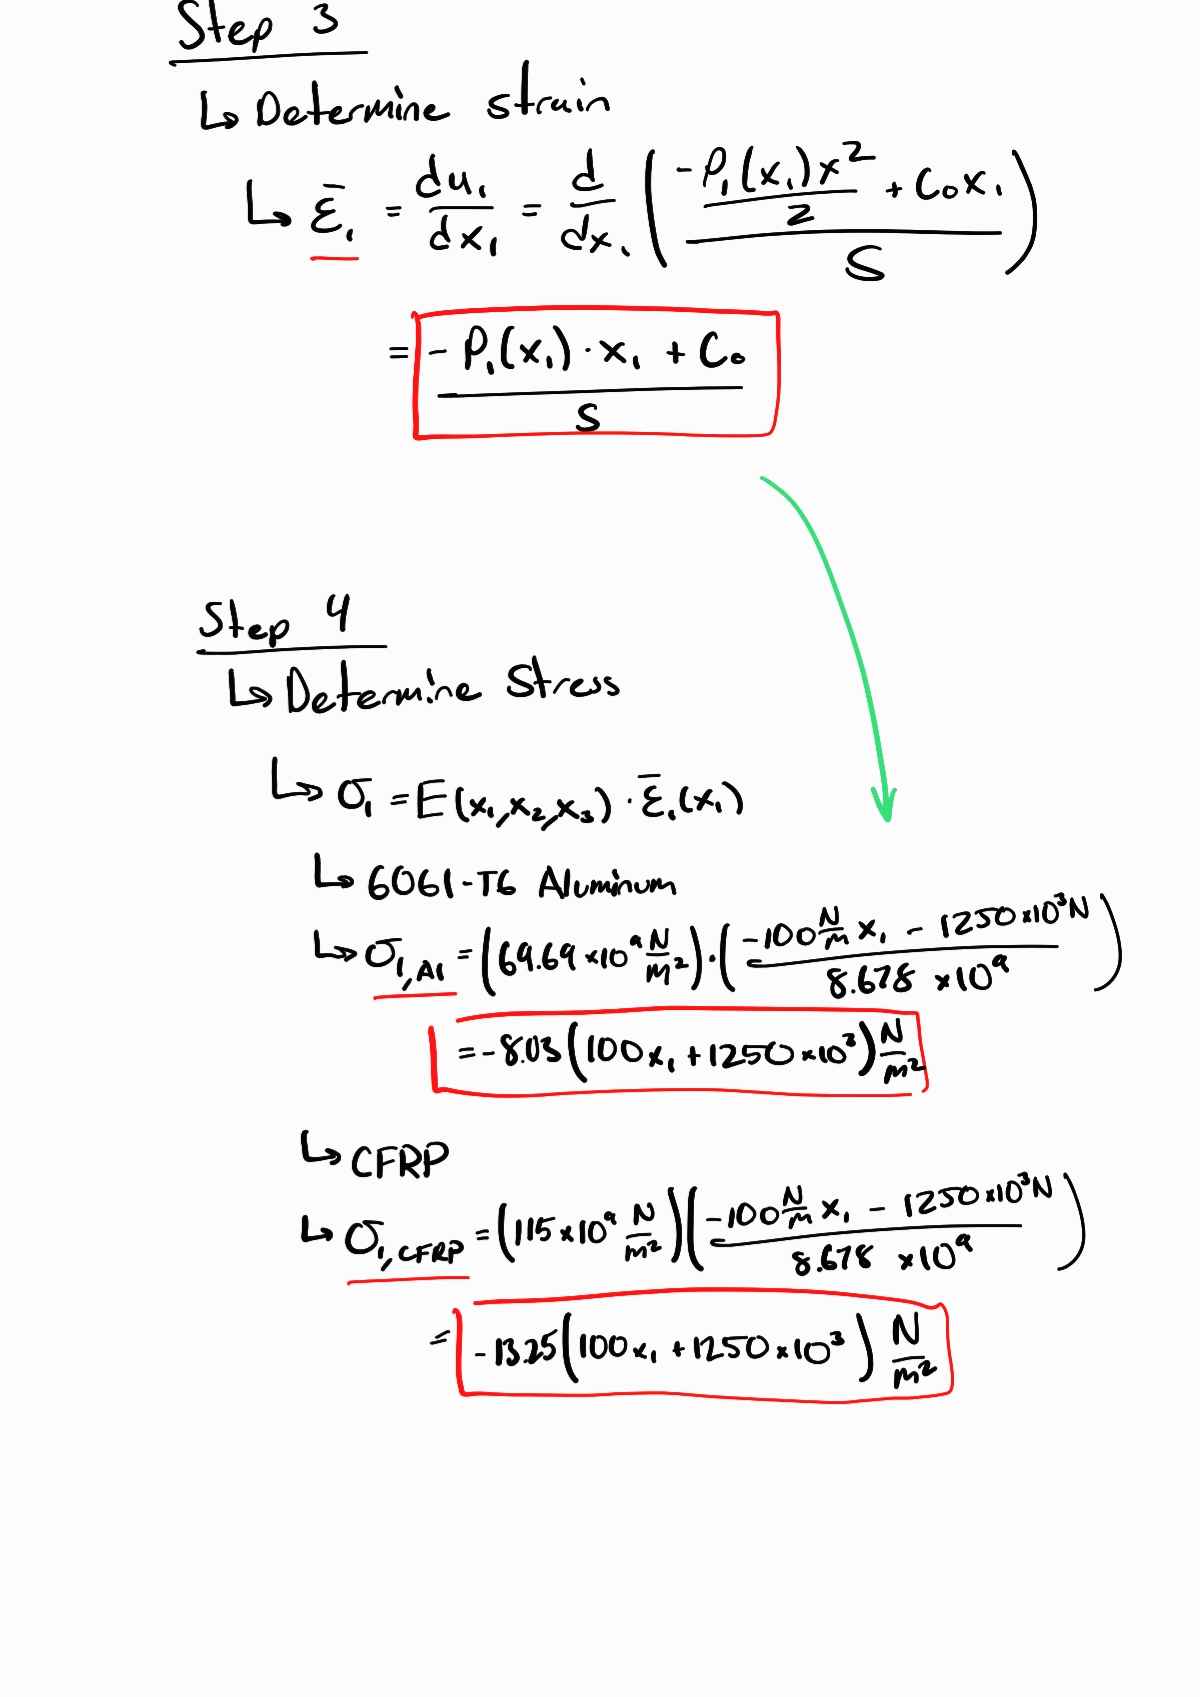 Step 3
↳ Determine strain
↳ ε̄₁ = du₁/dx₁ = d/dx₁ ((-P₁(x₁)x²/2 + C₀x₁)/S)
= (-P₁(x₁)·x₁ + C₀)/S
Step 4
↳ Determine Stress
↳ σ₁ = E(x₁,x₂,x₃)·ε̄₁(x₁)
↳ 6061-T6 Aluminum
↳ σ₁,Al = (69.69 ×10⁹ N/m²)·((-100 N/m x₁ - 1250×10³N)/(8.678 ×10⁹))
= -8.03(100x₁ + 1250×10³) N/m²
↳ CFRP
↳ σ₁,CFRP = (115×10⁹ N/m²)((-100 N/m x₁ - 1250×10³N)/(8.678 ×10⁹))
= -13.25(100x₁ + 1250×10³) N/m²